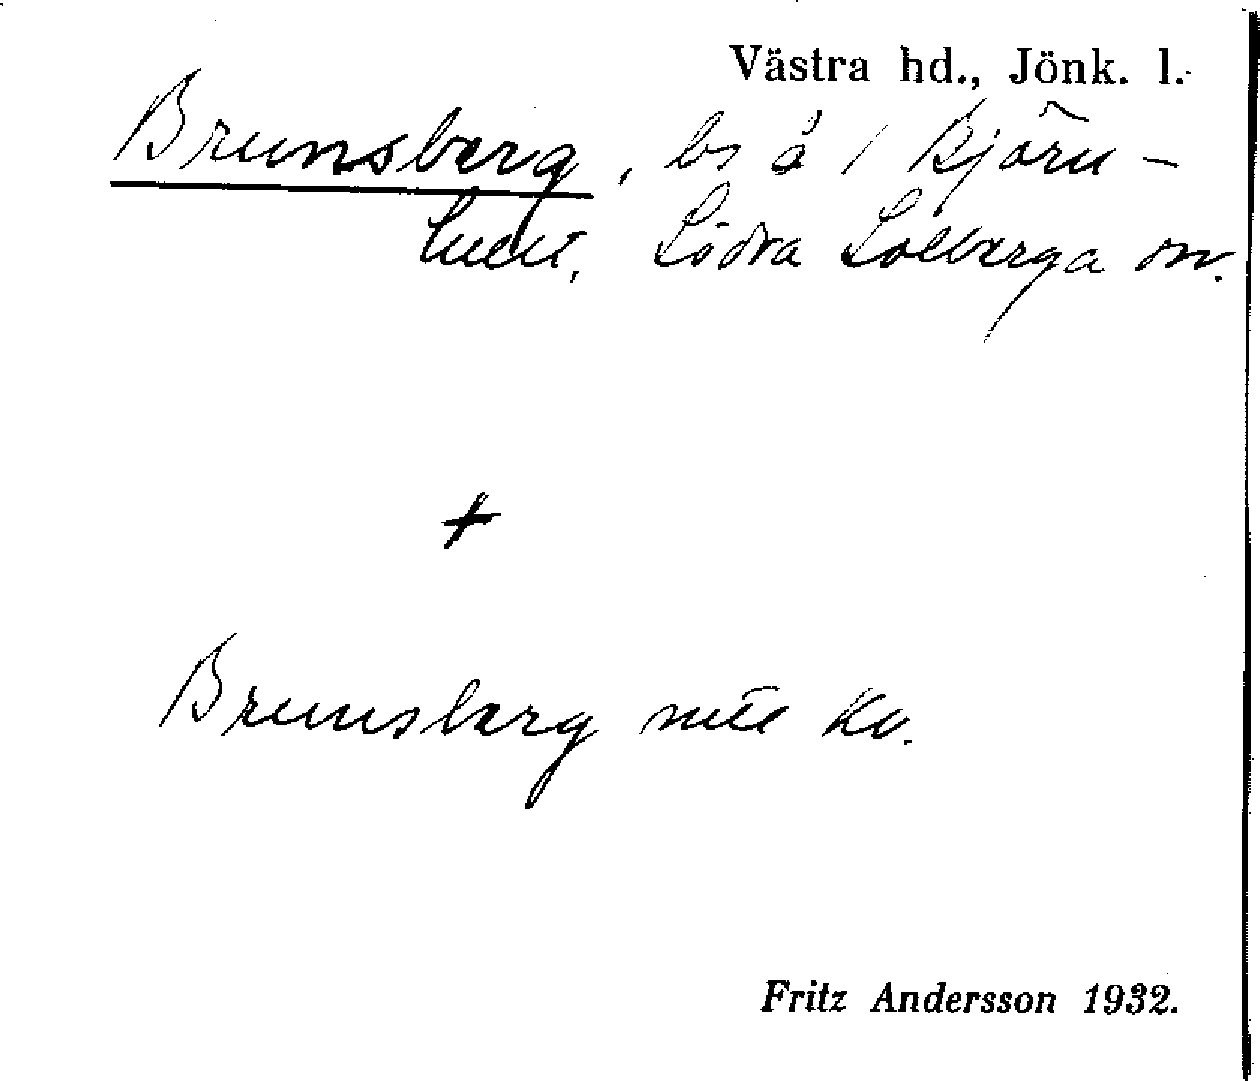 Västra hd., Jönk. l.
Brunsberg, ls å / Björn-
lund, Södra Solberga sn.
+
Brunsberg mtl Kv.
Fritz Andersson 1932.